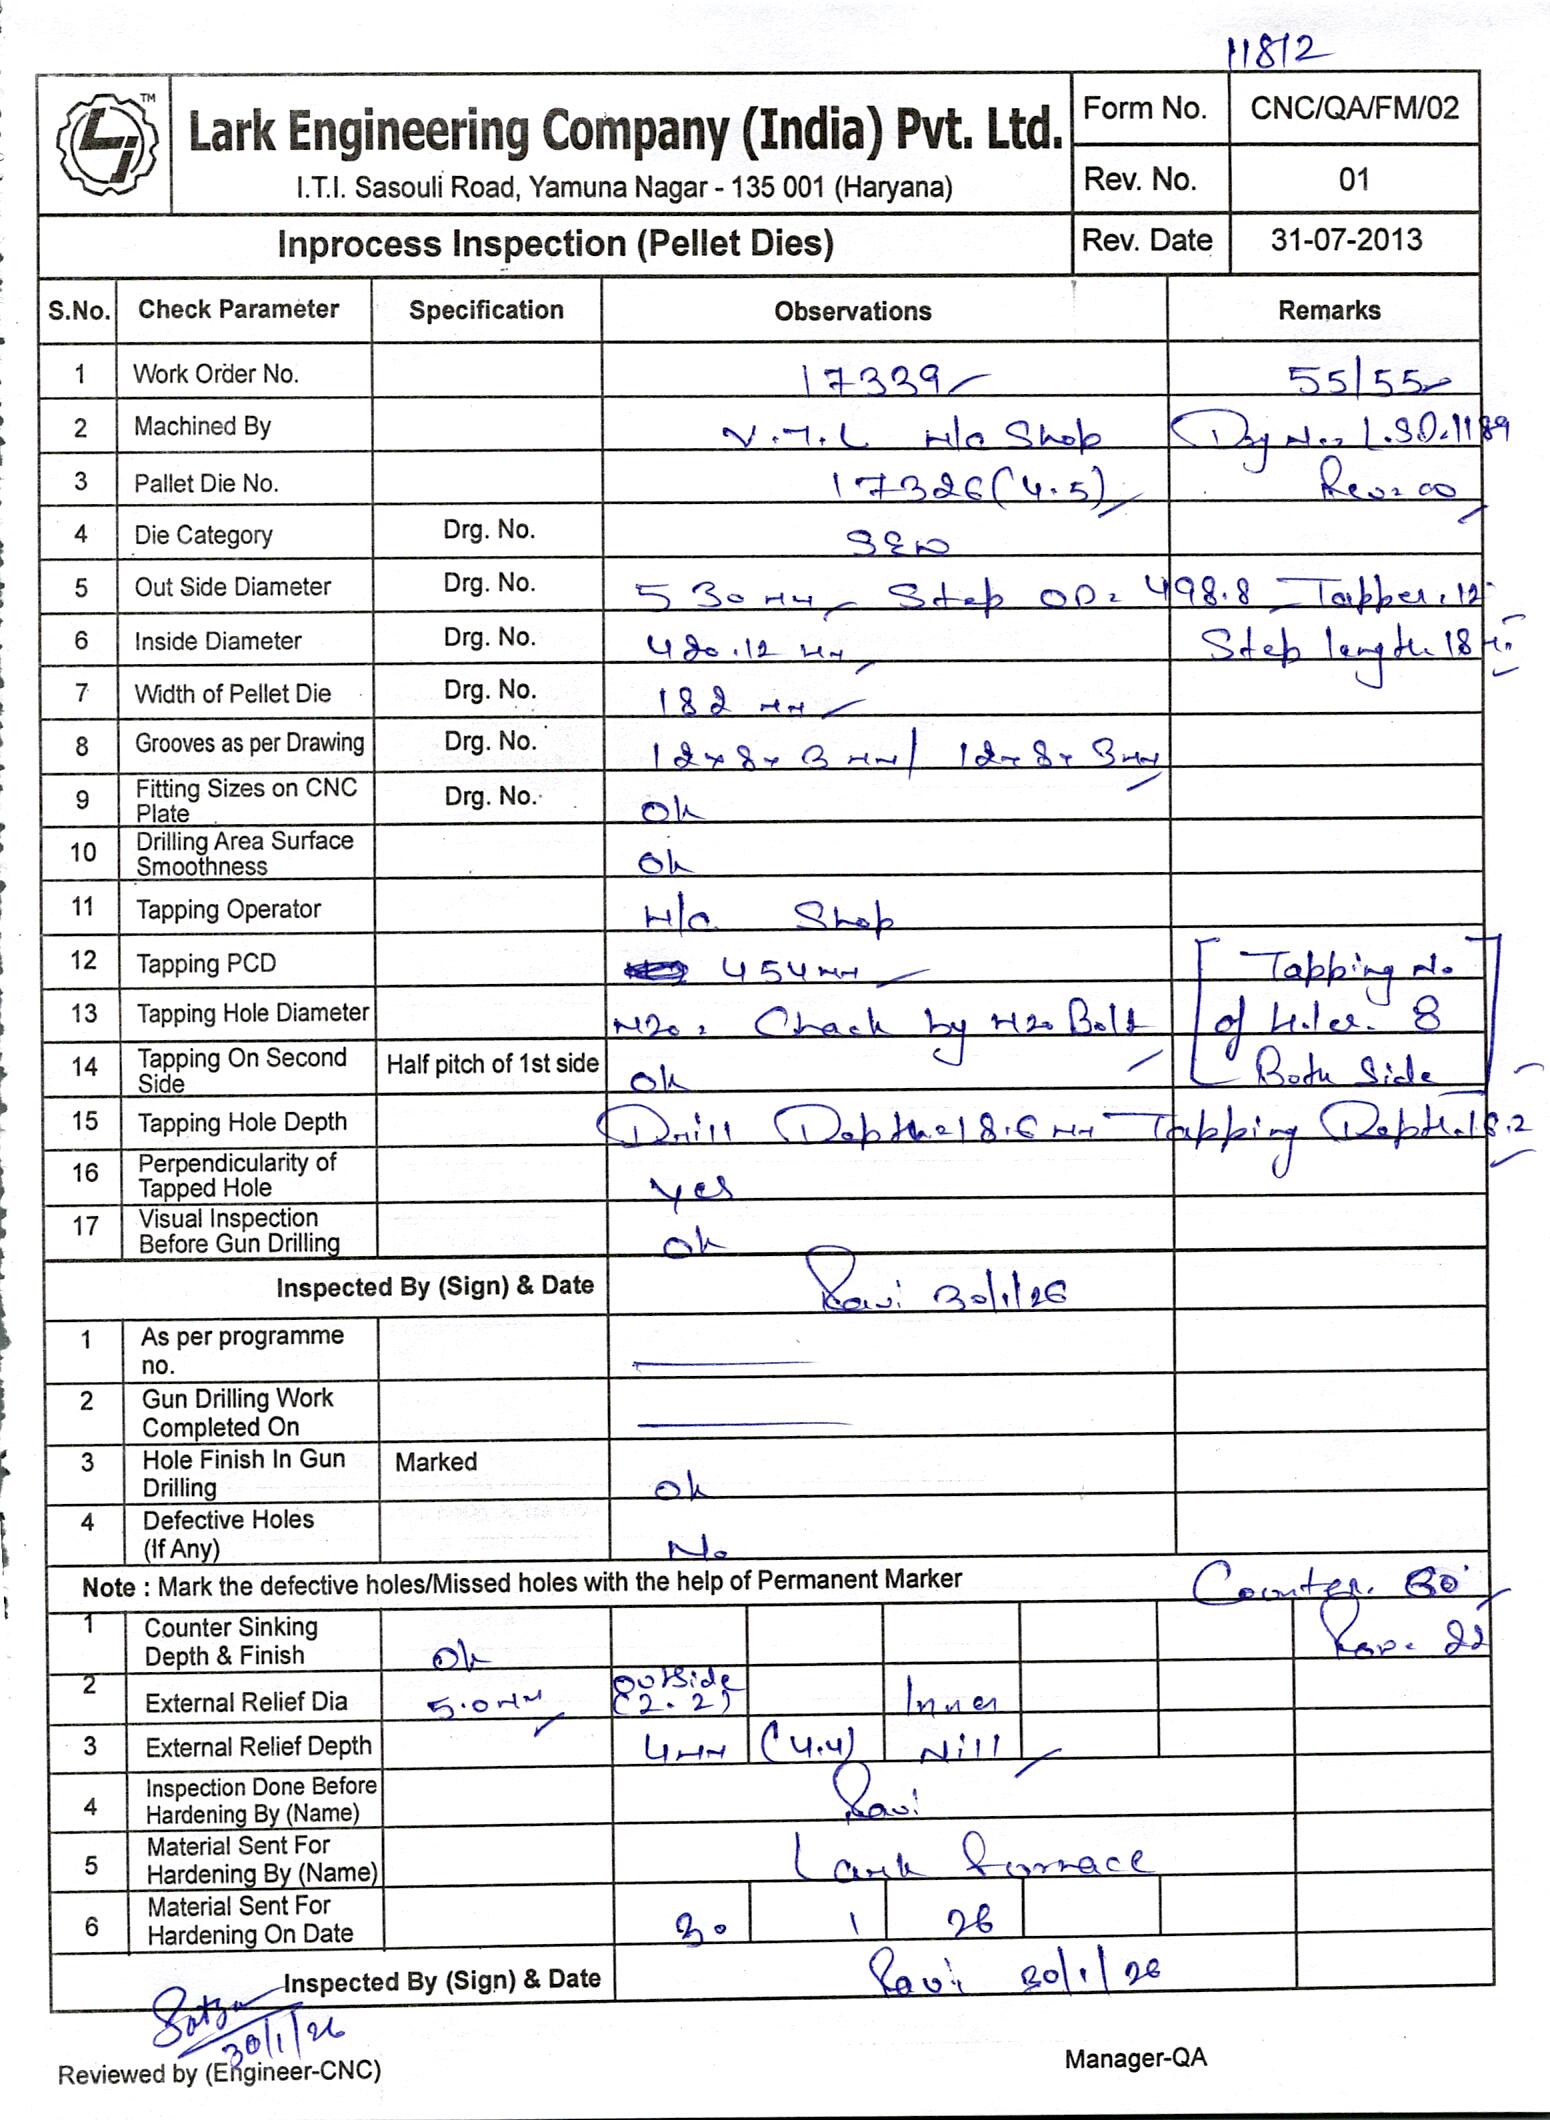 11812
LJ TM
Lark Engineering Company (India) Pvt. Ltd.
I.T.I. Sasouli Road, Yamuna Nagar - 135 001 (Haryana)
Form No. CNC/QA/FM/02
Rev. No. 01
Inprocess Inspection (Pellet Dies) Rev. Date 31-07-2013
S.No. Check Parameter Specification Observations Remarks
1 Work Order No. 17339 55/55
2 Machined By V.T.L M/c Shop Drg No.: L.SD.1189
3 Pallet Die No. 17326(4.5) Rev: 00
4 Die Category Drg. No. SEN
5 Out Side Diameter Drg. No. 530 MM Step OD: 498.8 Tapper. 12
6 Inside Diameter Drg. No. 420.12 MM Step length. 18 M
7 Width of Pellet Die Drg. No. 182 MM
8 Grooves as per Drawing Drg. No. 12x8x3 MM/ 12x8x3 MM
9 Fitting Sizes on CNC
Plate Drg. No. Ok
10 Drilling Area Surface
Smoothness Ok
11 Tapping Operator M/c Shop
12 Tapping PCD 454 MM Tapping No.
13 Tapping Hole Diameter M20: Check by M20 Bolt of Holes. 8
14 Tapping On Second
Side Half pitch of 1st side Ok Both Side
15 Tapping Hole Depth Drill Depth: 18.6 MM Tapping Depth. 18.2
16 Perpendicularity of
Tapped Hole Yes
17 Visual Inspection
Before Gun Drilling Ok
Inspected By (Sign) & Date Ravi 30/1/26
1 As per programme
no.
2 Gun Drilling Work
Completed On
3 Hole Finish In Gun
Drilling Marked Ok
4 Defective Holes
(If Any) No
Note : Mark the defective holes/Missed holes with the help of Permanent Marker Counter. 60°
1 Counter Sinking
Depth & Finish Ok 22
2 External Relief Dia 5.0 MM Outside (2.2) Inner
3 External Relief Depth 4 MM (4.4) Nill
4 Inspection Done Before
Hardening By (Name) Ravi
5 Material Sent For
Hardening By (Name) Lark Furnace
6 Material Sent For
Hardening On Date 30 1 26
Inspected By (Sign) & Date Ravi 30/1/26
30/1/26
Reviewed by (Engineer-CNC) Manager-QA